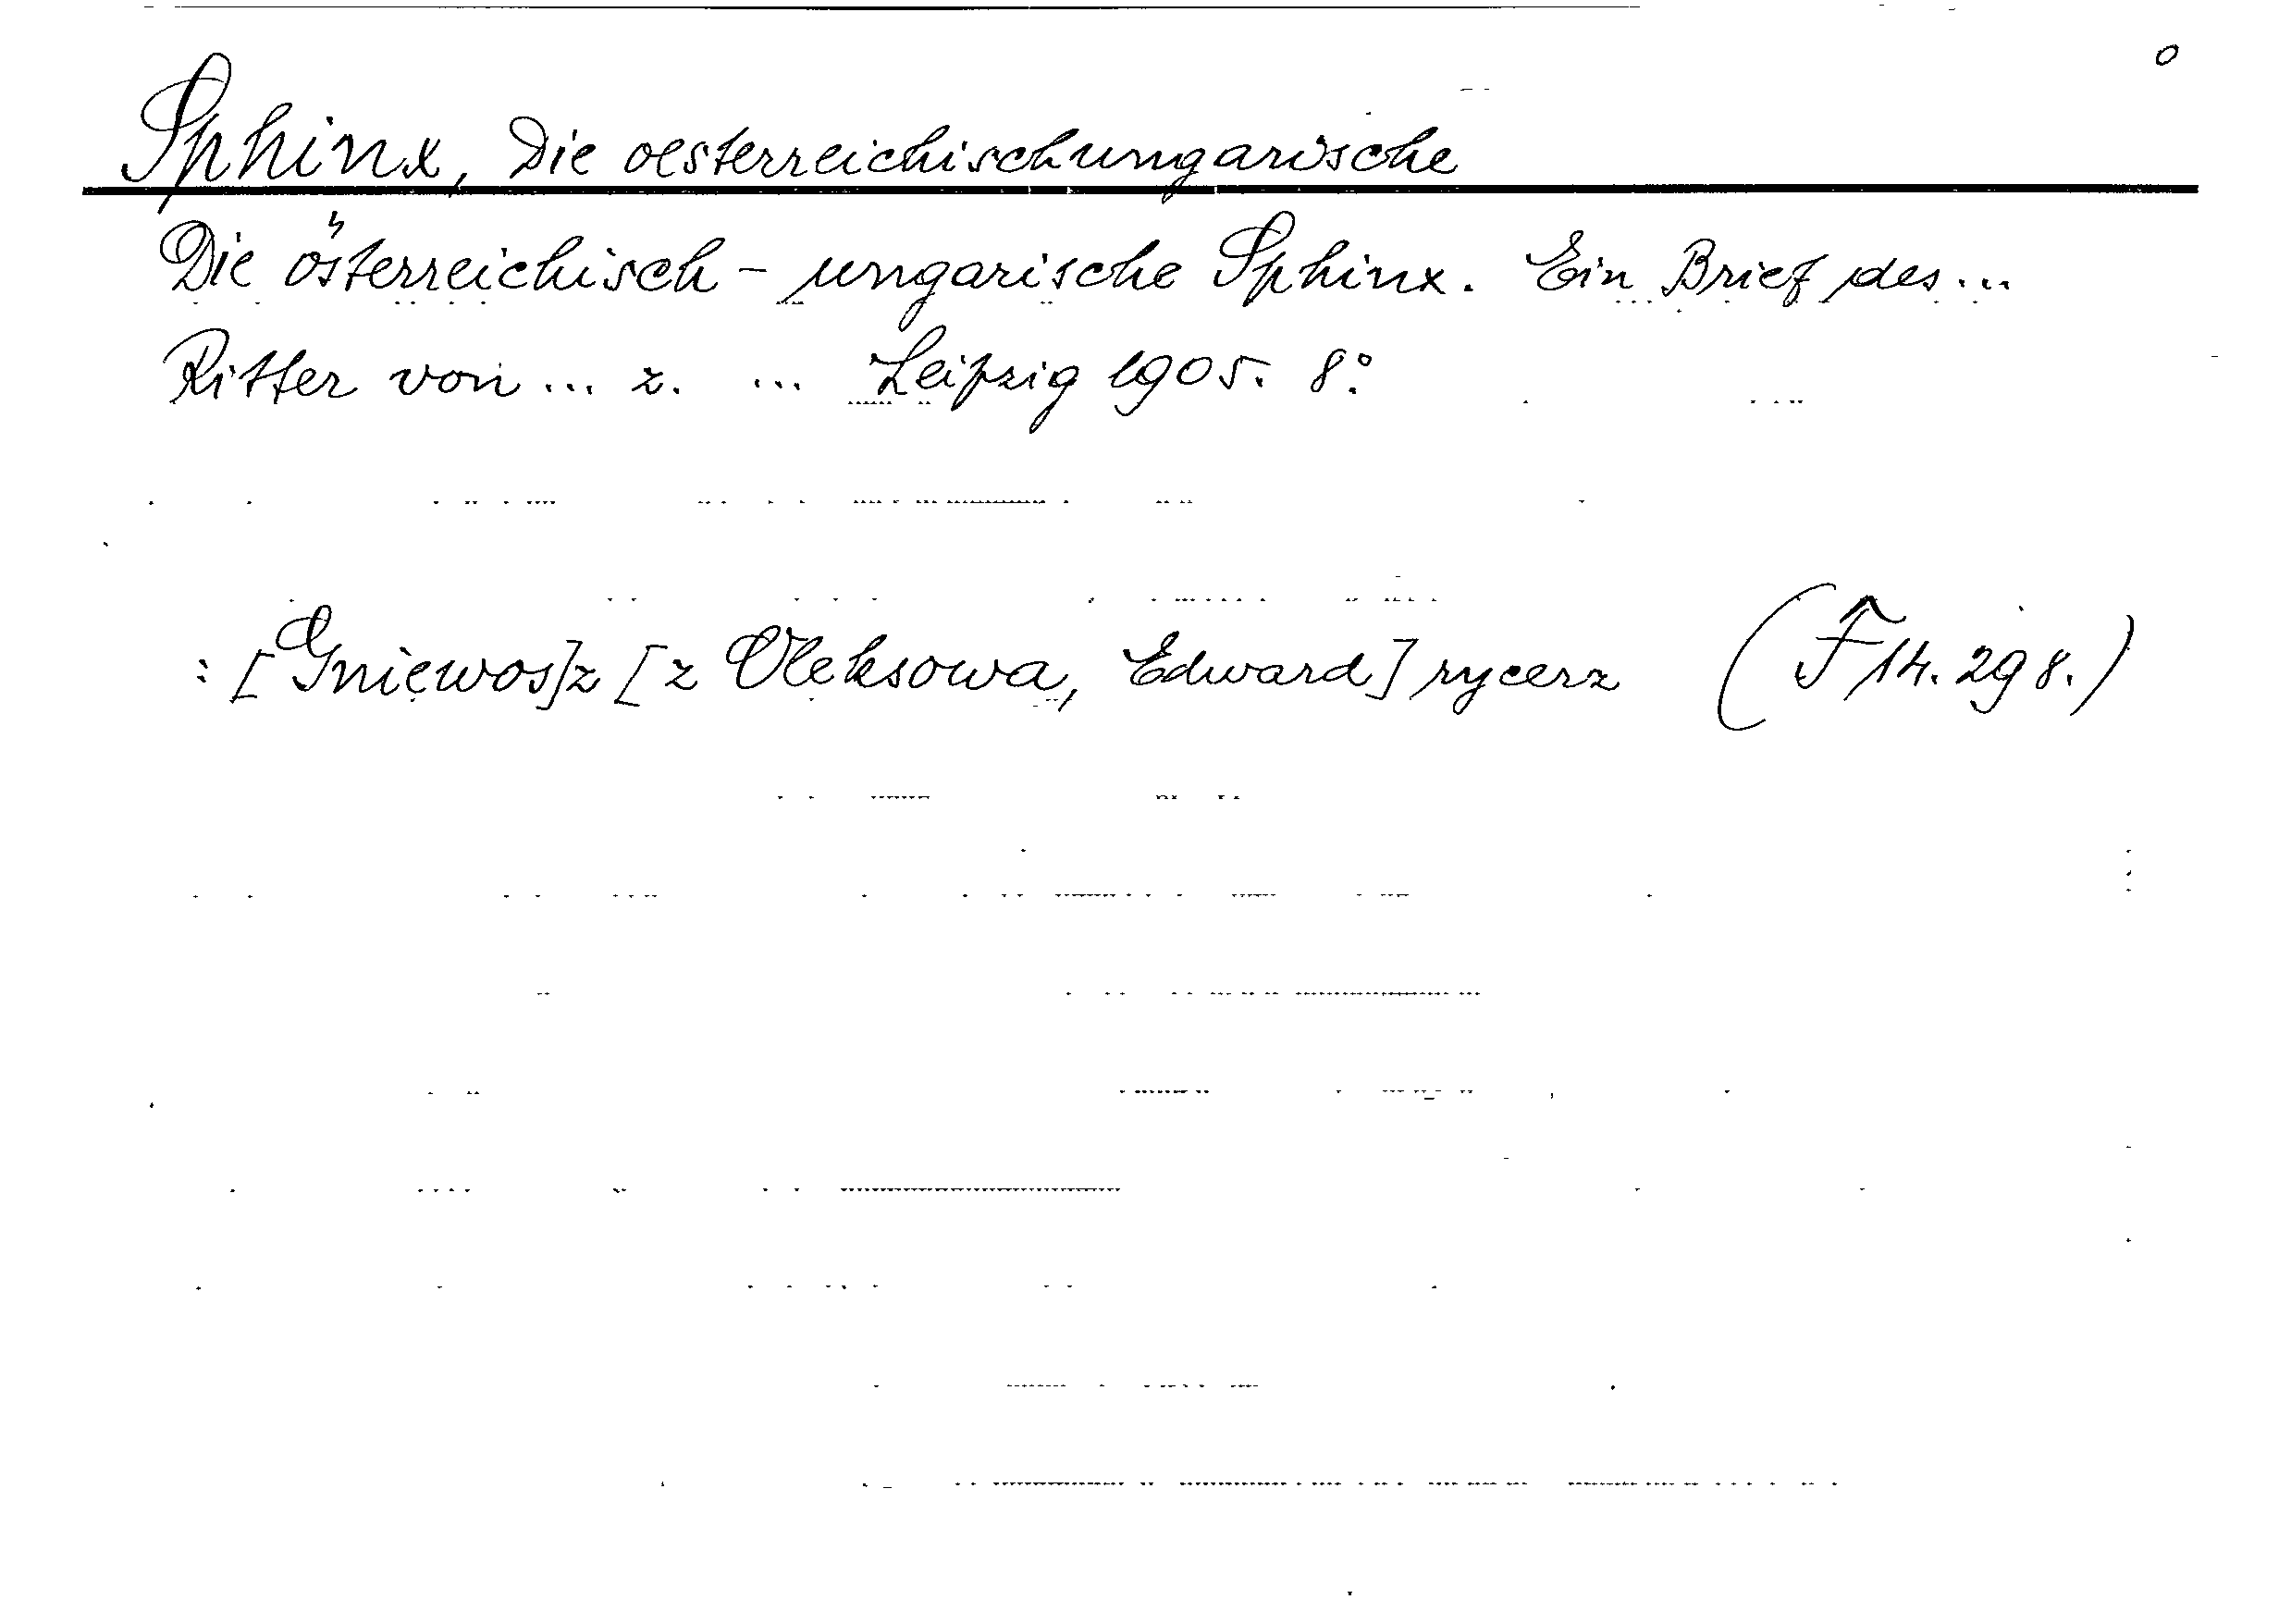 o
Sphinx, Die oesterreichischungarische
Die österreichisch - ungarische Sphinx. Ein Brief des ...
Ritter von ... z. ... Leipzig 1905. 8°.
: [Gniewos]z [z Oleksowa, Edward] rycerz (F 14. 298.)